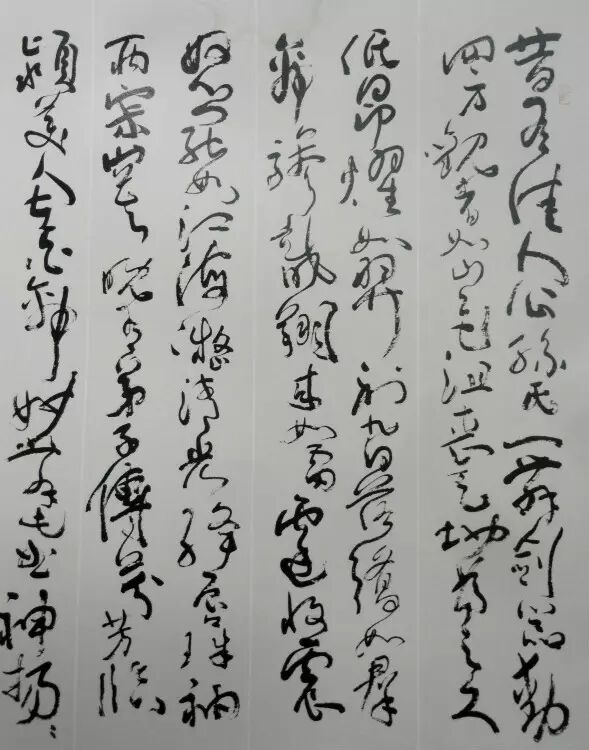 昔有佳人公孫氏一舞劍器動
四方觀者如山色沮喪天地為之久
低昂燿如羿射九日落矯如群
帝驂龍翔來如雷霆收震
怒罷如江海凝清光絳唇珠袖
兩寂寞晚有弟子傳芬芳臨
潁美人在白帝妙舞此曲神揚〻